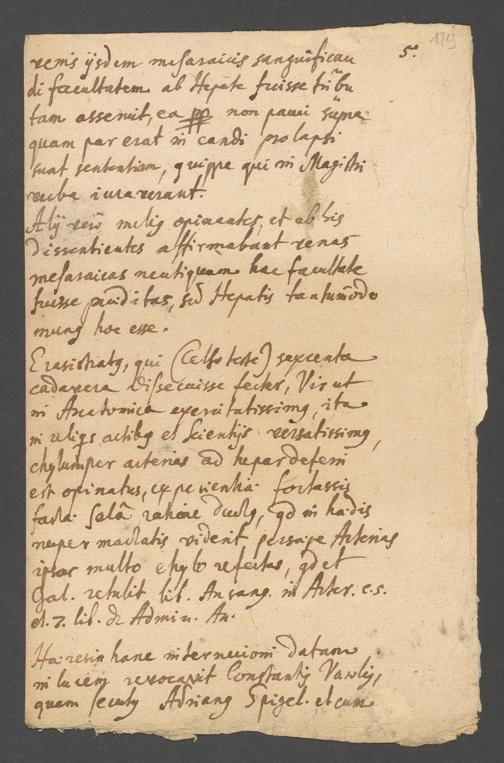 5. 129
venis ijsdem mesaraicis sanguificandi
di facultatem ab Hepate fuisse tribu
tam asseruit, ea non pauci
quam par erat in candi prolapsi
sunt sententiam, quippe qui in Magistri
verba iuraverant.
Alij verò melig opinantes, et ab his
dissentientes affirmabant venas
mesaraicas neutiquam hac facultate
fuisse praeditas, sed Hepatis tantumodo
munq hoc esse.
Erasistratq, qui (Celso teste) sexcenta
cadavera dissecuisse fertur, Vir ut
in Anatomica exercitatissimq, ita
in reliqs actibq et Scientijs versatissimq,
chylum per arterias ad hepar deferri
est opinatus, experientia fortassis
facta falsa ratione ductq, qd in hædis
nuper mactatis viderit persæpe Arterias
ipsas multo chylo refertas, qd et
Gal. retulit lib. An sang. in Arter. c.5.
et 7. lib. de Admin. An.
Hæresin hanc internecioni datam
in lucem revocavit Constantiq Varoliq,
quem secutq Adrianq Spigel. et cum